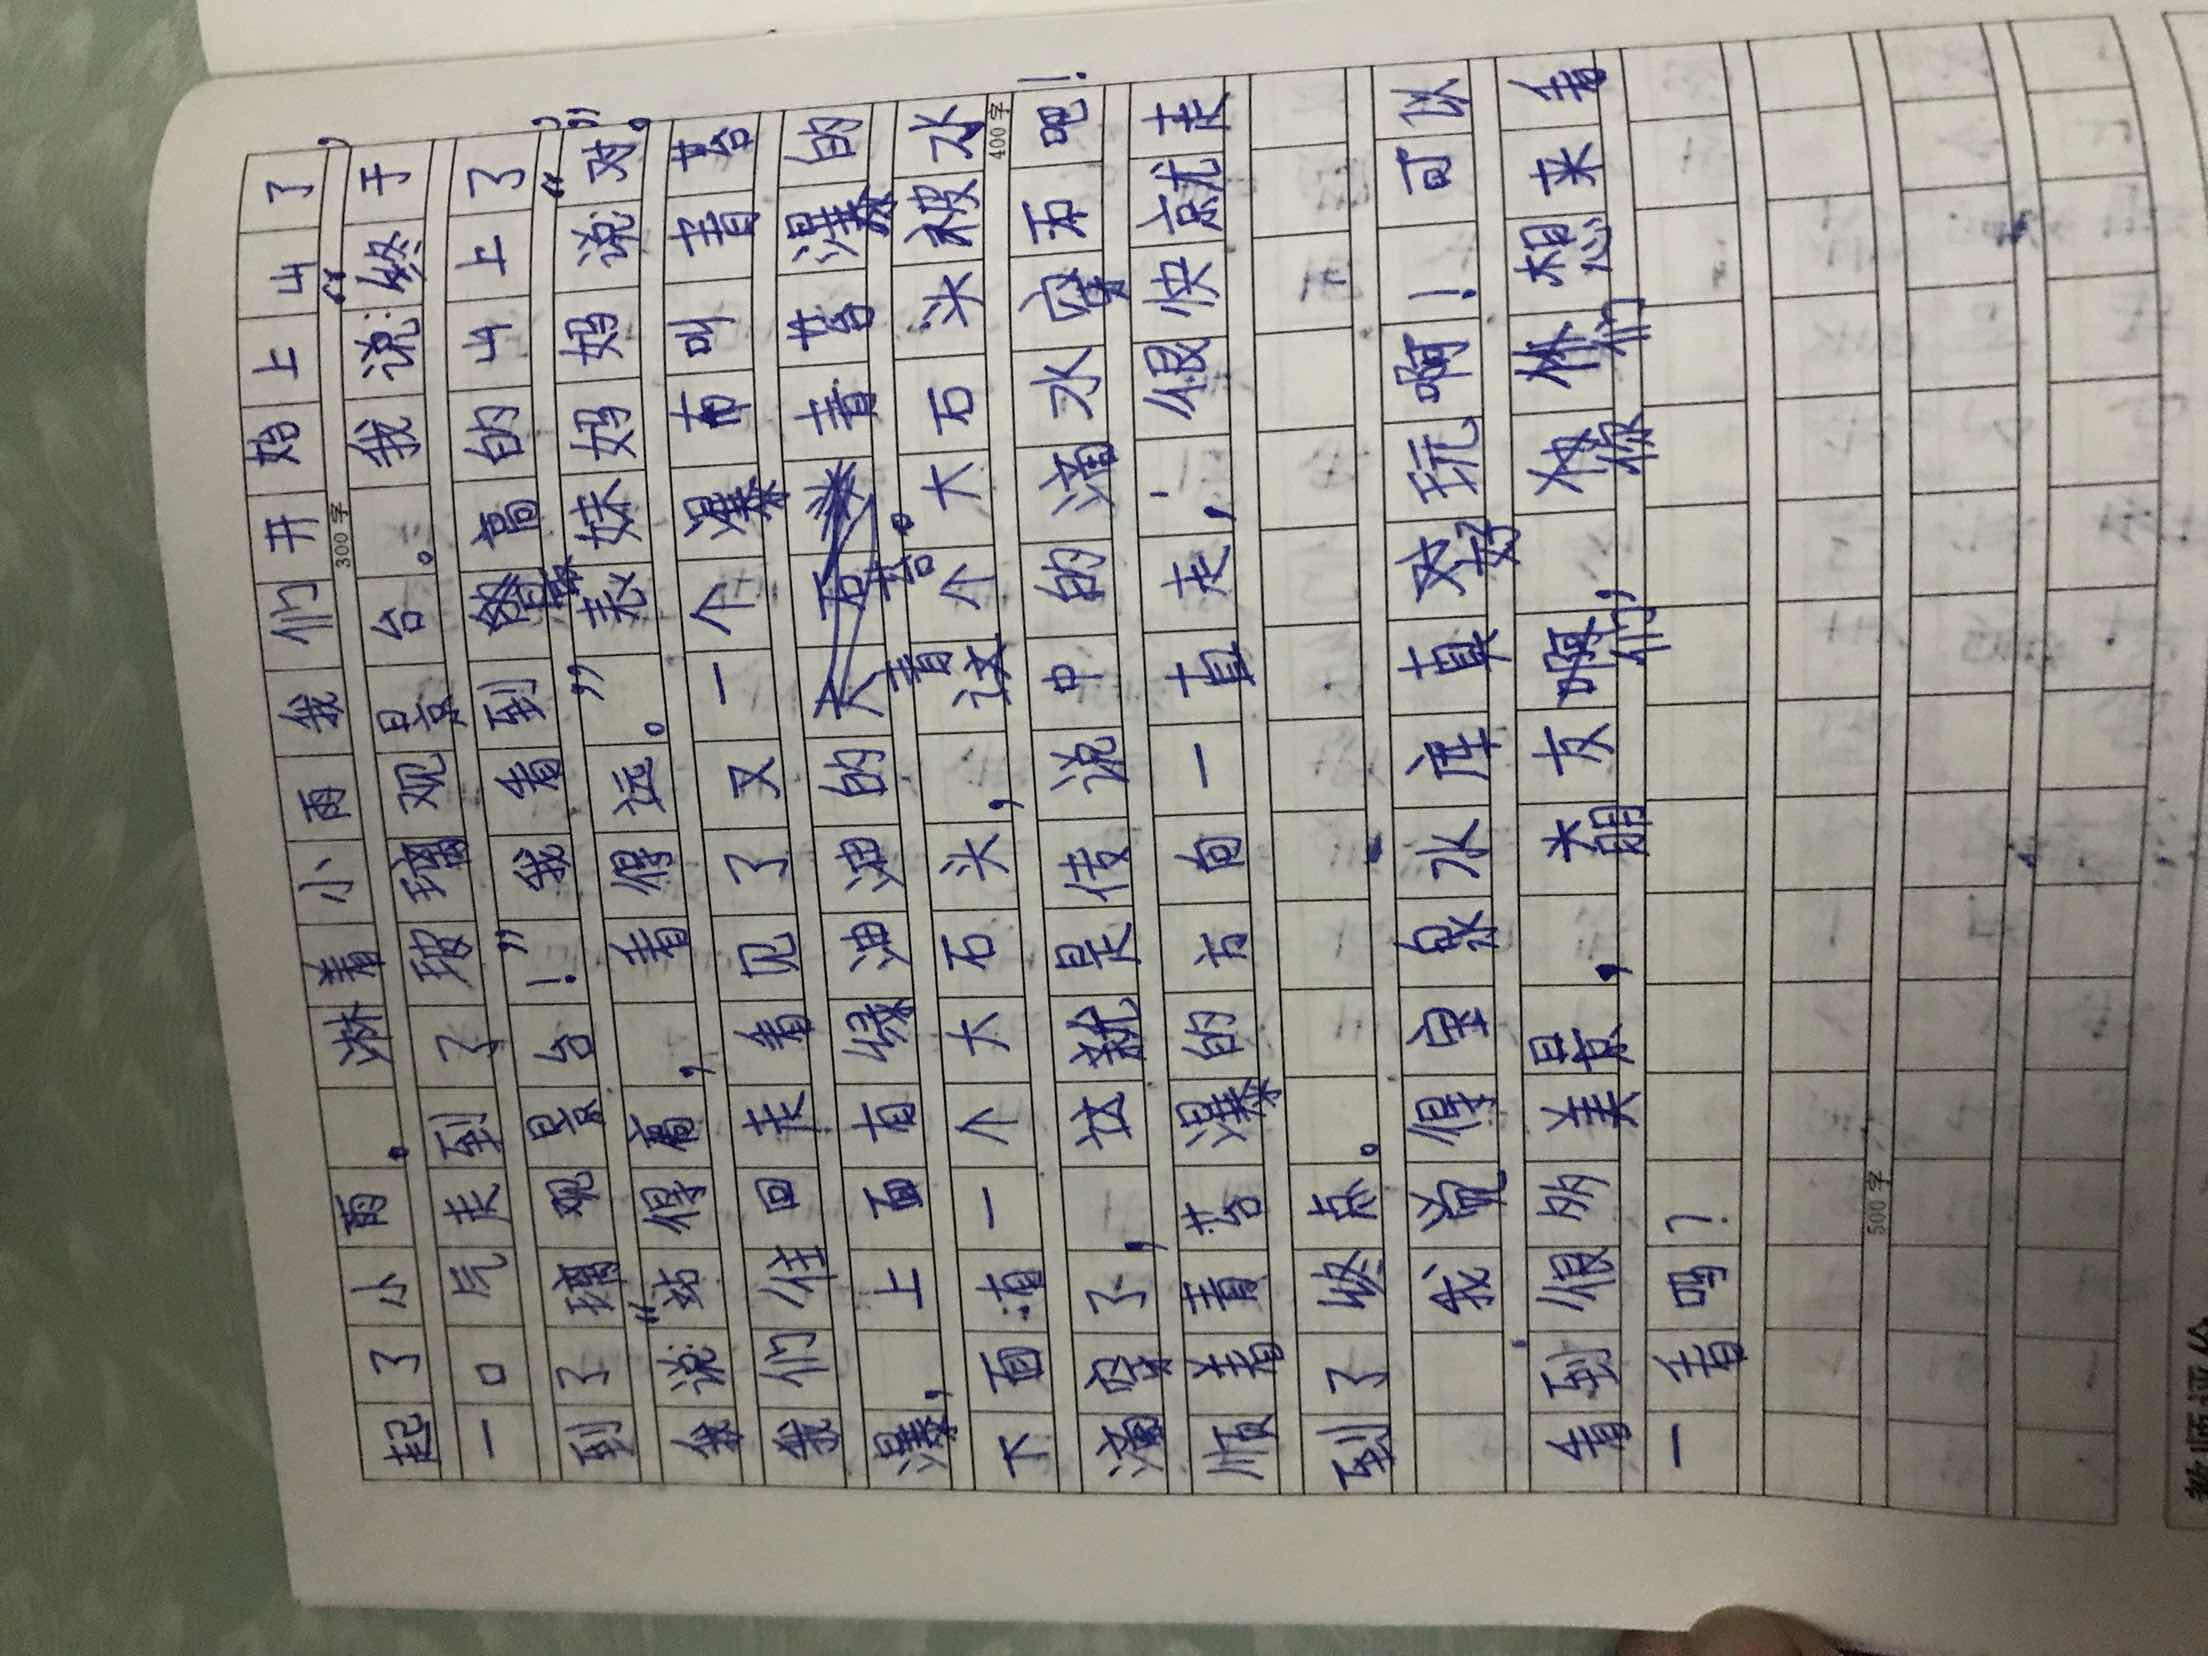 起了小雨。淋着小雨我们开始上山了，
300字
一口气走到了玻璃观景台。我说：“终于
到了璃观景台！”我看到高的山上了，
我说“站得高，看得远。”表妹妈妈说“对”。
我们往回走看见了又一个瀑布叫青苔
瀑，上面有绿油油的青苔。青苔瀑的
下面一个大石头，这个大石头被水
400字
滴穿了，这就是传说中的滴水穿石吧！
顺着青苔瀑的方向一直走，很快就走
到了终点。
我觉得圣泉水库真好玩啊！可以
看到很多美景，大朋友们，你们想来看
一看吗？
500字